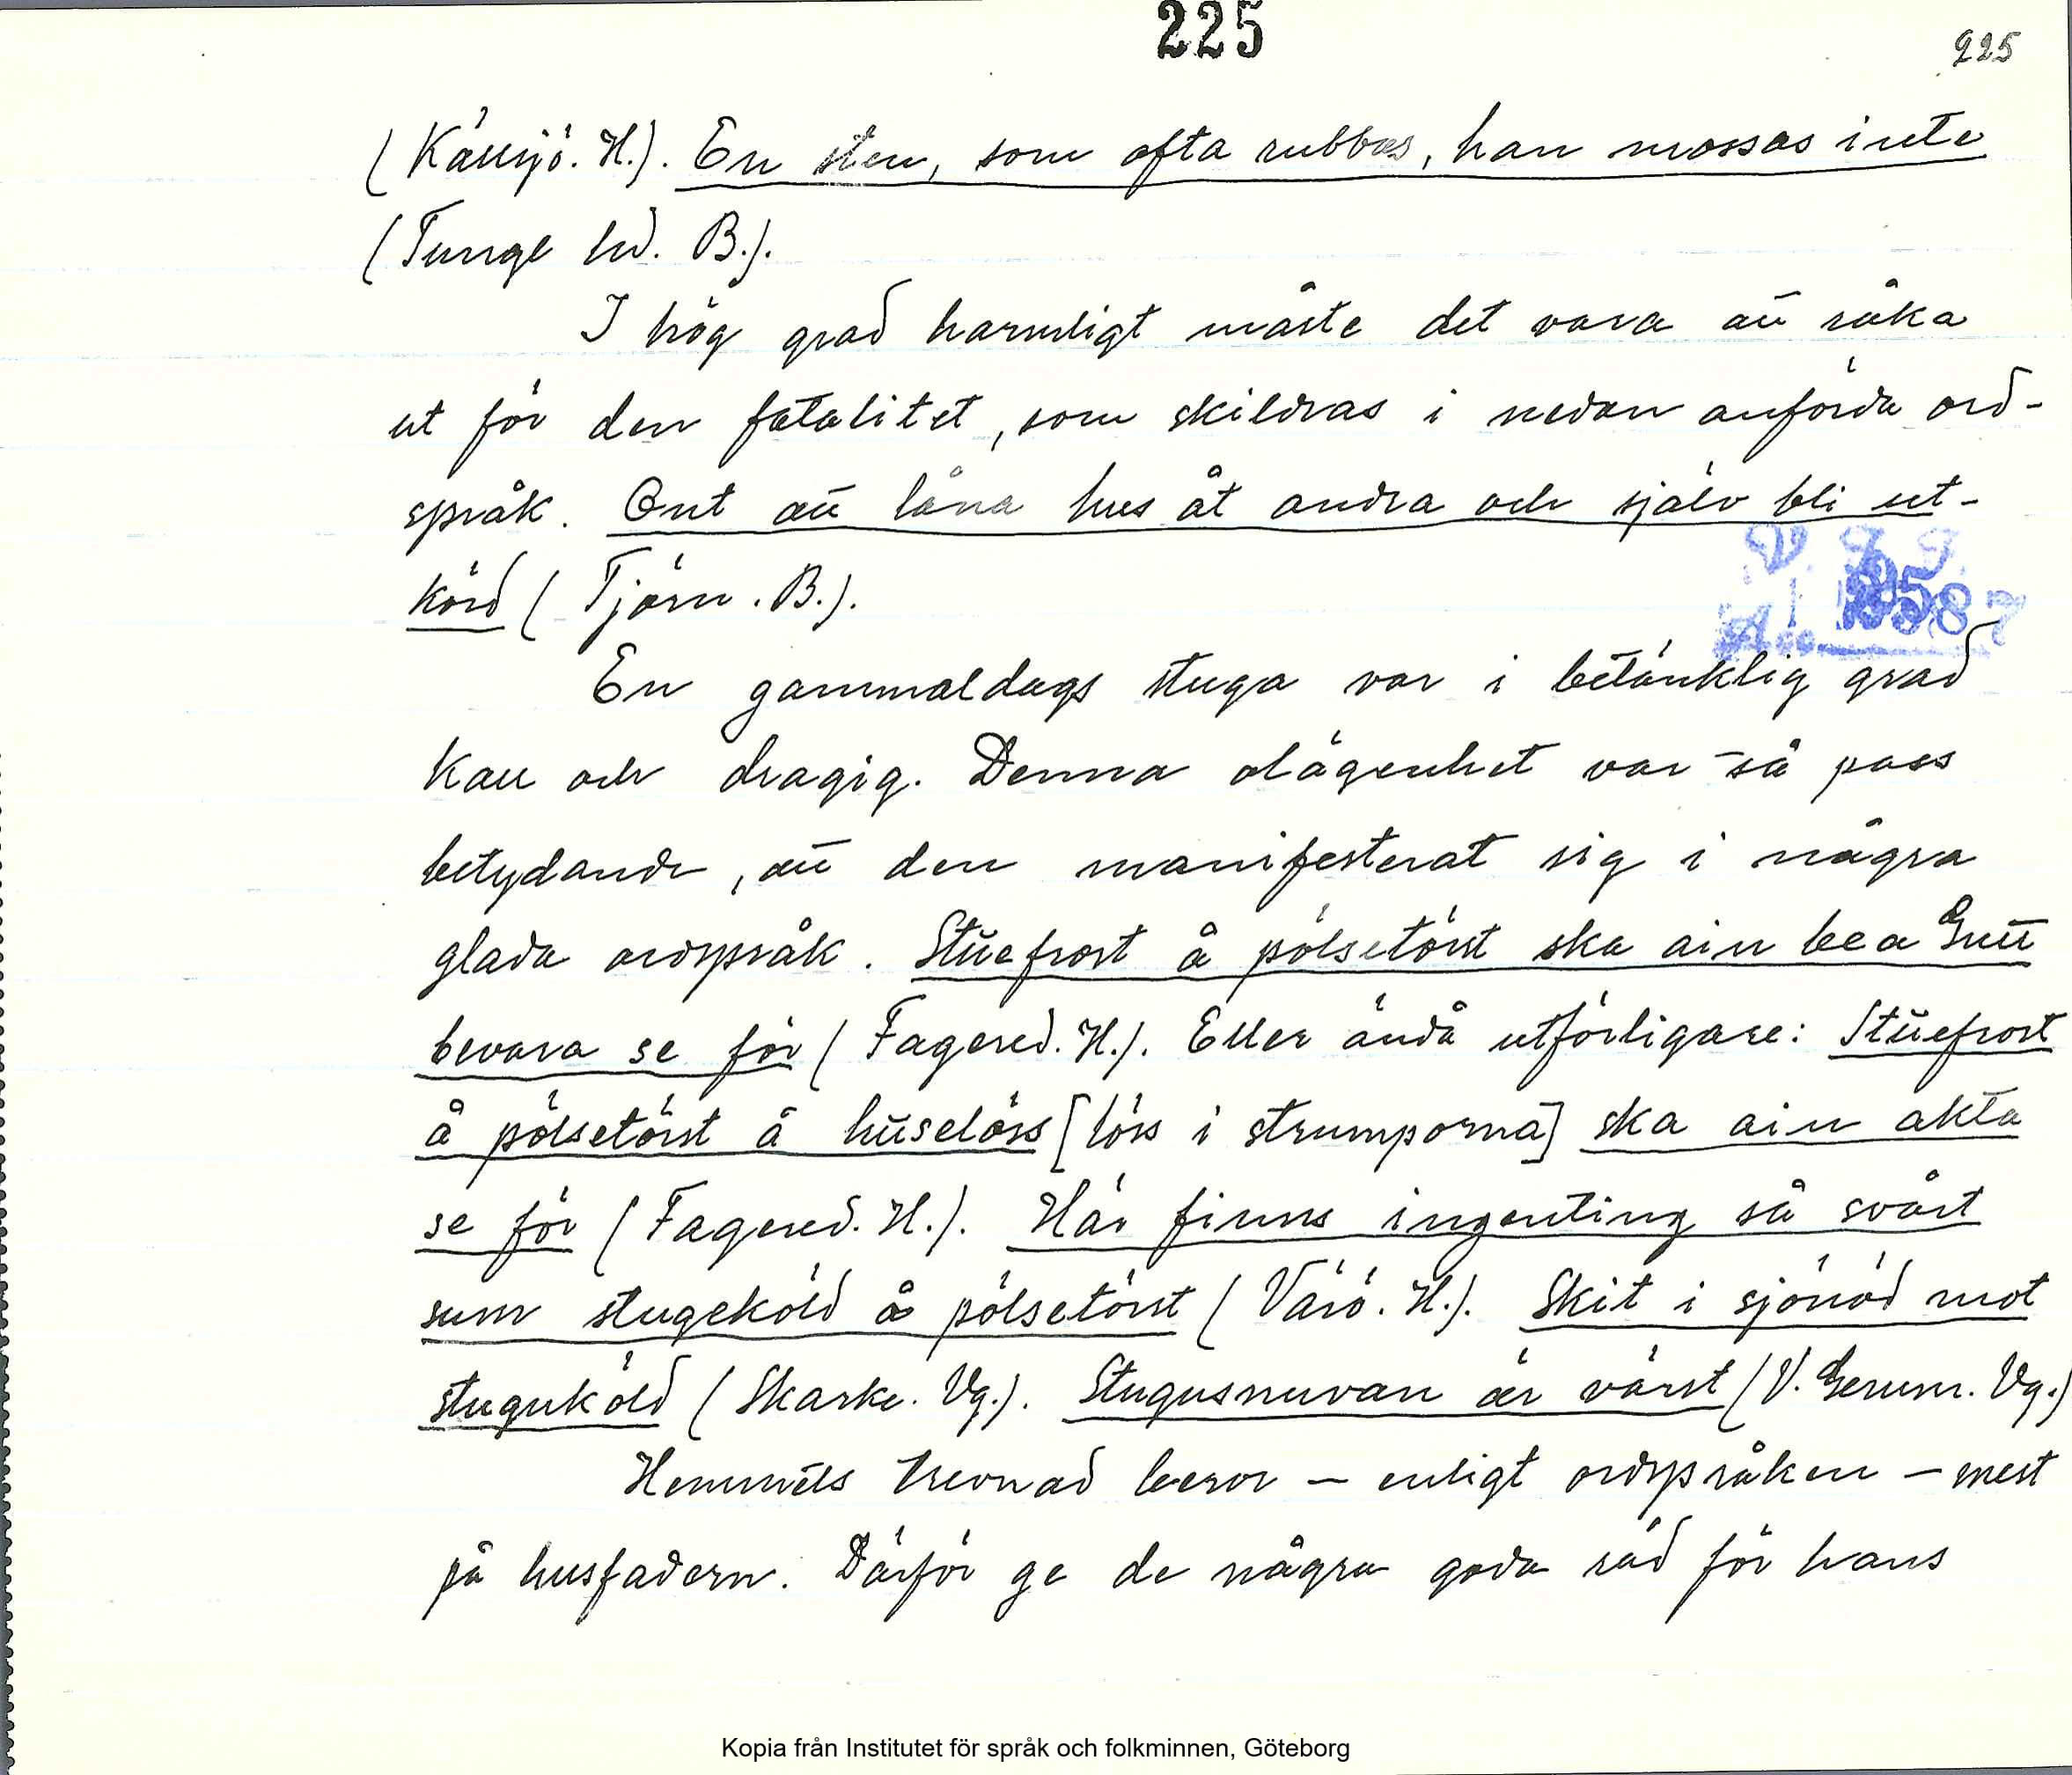 225
225
(Källsjö. H.). En sten, som ofta rubbas, han mossas inte
(Tunge hd. B.).
I hög grad harmligt måste det vara att råka
ut för den fatalitet, som skildras i nedan anförda ord-
språk. Ont att låna hus åt andra och själv bli ut-
körd (Tjörn. B.).
En gammaldags stuga var i betänklig grad
kall och dragig. Denna olägenhet var så pass
betydande, att den manifesterat sig i några
glada ordspråk. Stuefrost å pölsetörst ska ain bea Gutt
bevara se för (Fagered. H.). Eller ändå utförligare: Stuefrost
å pölsetörst å huselöss [löss i strumporna] ska ain akta
se för (Fagered. H.). Här finns ingenting så svårt
sum stugeköld å pölsetörst (Värö. H.). Skit i sjönöd mot
stuguköld (Skarke. Vg.). Stugusnuvan är värst (V. Gerum. Vg.)
Hemmets trevnad beror – enligt ordspråken – mest
på husfadern. Därför ge de några goda råd för hans
Kopia från Institutet för språk och folkminnen, Göteborg